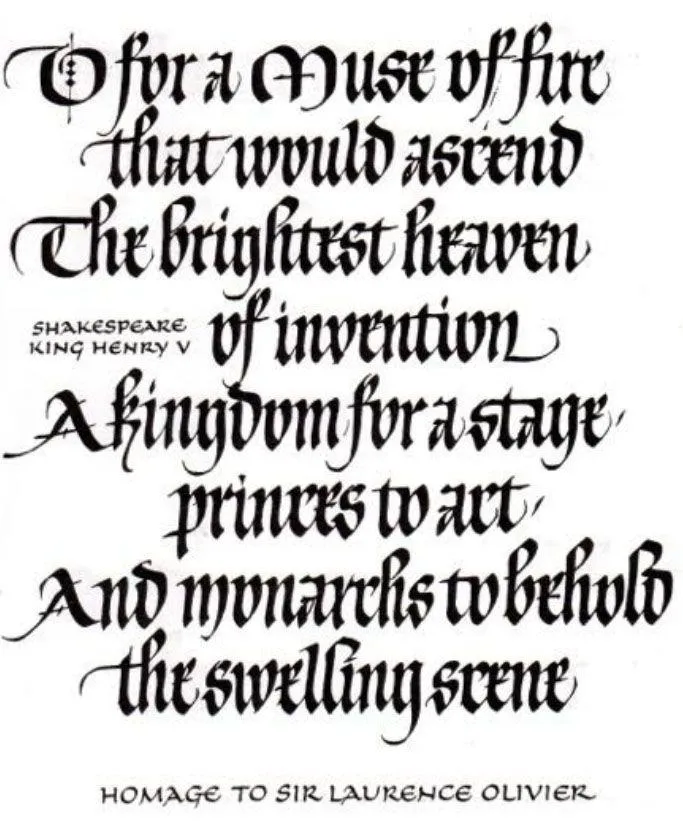 O for a Muse of fire
that would ascend
The brightest heaven
SHAKESPEARE
KING HENRY V
of invention
A kingdom for a stage,
princes to act,
And monarchs to behold
the swelling scene
HOMAGE TO SIR LAURENCE OLIVIER